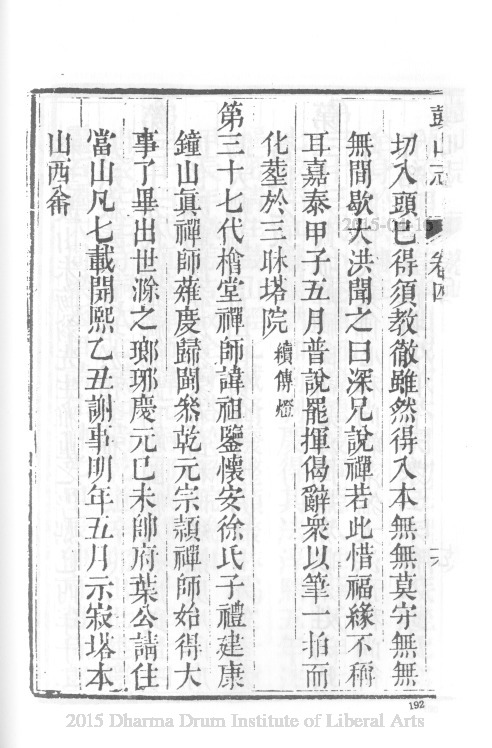 鼓山志 卷四
切入頭已得須教徹雖然得入本無無莫守無無
無間歇大洪聞之曰深兄說禪若此惜福緣不稱
耳嘉泰甲子五月普說罷揮偈辭衆以筆一拍而
化塟於三昧塔院 續傳燈
第三十七代檜堂禪師諱祖鑒懷安徐氏子禮建康
鐘山眞禪師薙慶歸閩叅乾元宗頴禪師始得大
事了畢出世滁之瑯琊慶元已未帥府葉公請住
當山凡七載開熙乙丑謝事明年五月示寂塔本
山西畲
192
2015 Dharma Drum Institute of Liberal Arts